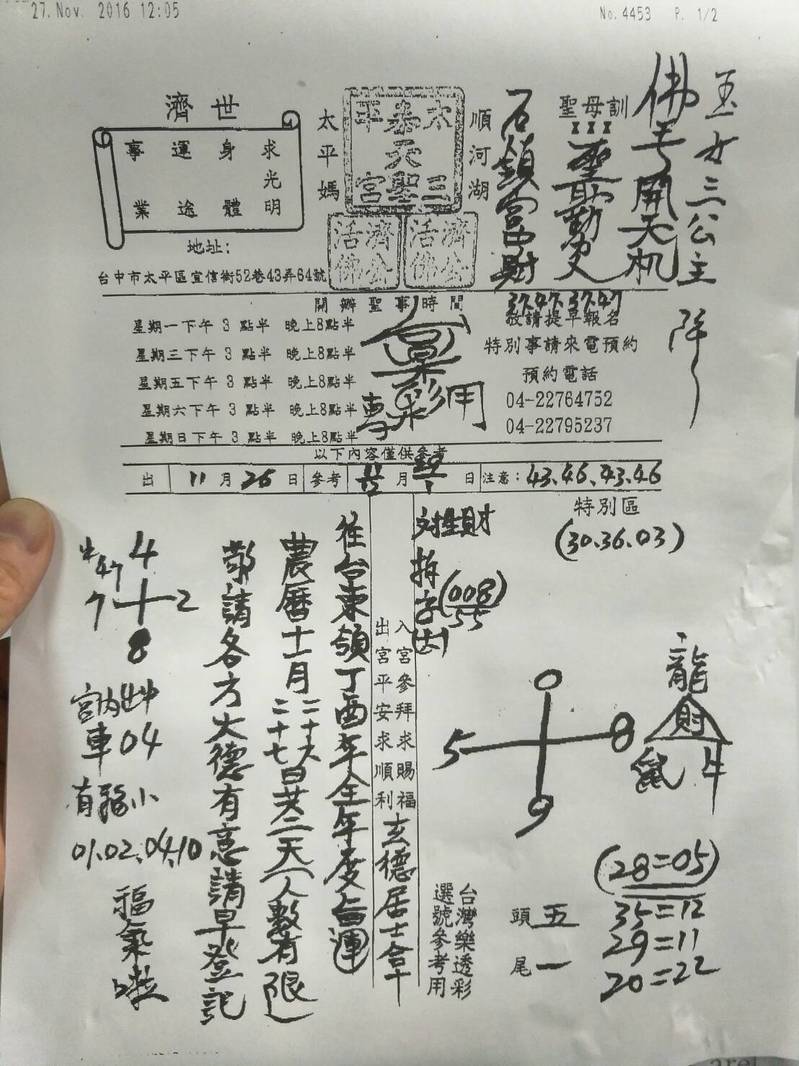 27.Nov. 2016 12:05
No.4453 P. 1/2
玉女三公主降
佛手開天机
聖母訓
順河湖
太平媽
濟世
求身運事
光
明體途業
地址:
台中市太平區宜信街52巷43弄64號
開辦聖事時間
星期一下午 3 點半 晚上8點半
星期三下午 3 點半 晚上8點半
星期五下午 3 點半 晚上8點半
星期六下午 3 點半 晚上8點半
星期日下午 3 點半 晚上8點半
37.47.37.47
敬請提早報名
特別事請來電預約
預約電話
04-22764752
04-22795237
專用
以下內容僅供參考
出 11月26日 參考 月 日 注意:43.46.43.46
特別區
(30.36.03)
(008)
55
入宮參拜求賜福
出宮平安求順利
玄德居士合十
往台東領丁酉年全年度旨運
農曆十一月二十六二十七日共二天(人數有限)
敬請各方大德有意請早登記
47
4
7 2
8
宮內
車04
有 小
01.02.04.10
福氣啦
0
5 8
9
龍
財
鼠 牛
(28=05)
35=12
29=11
20=22
頭 五
尾 一
台灣樂透彩
選號參考用